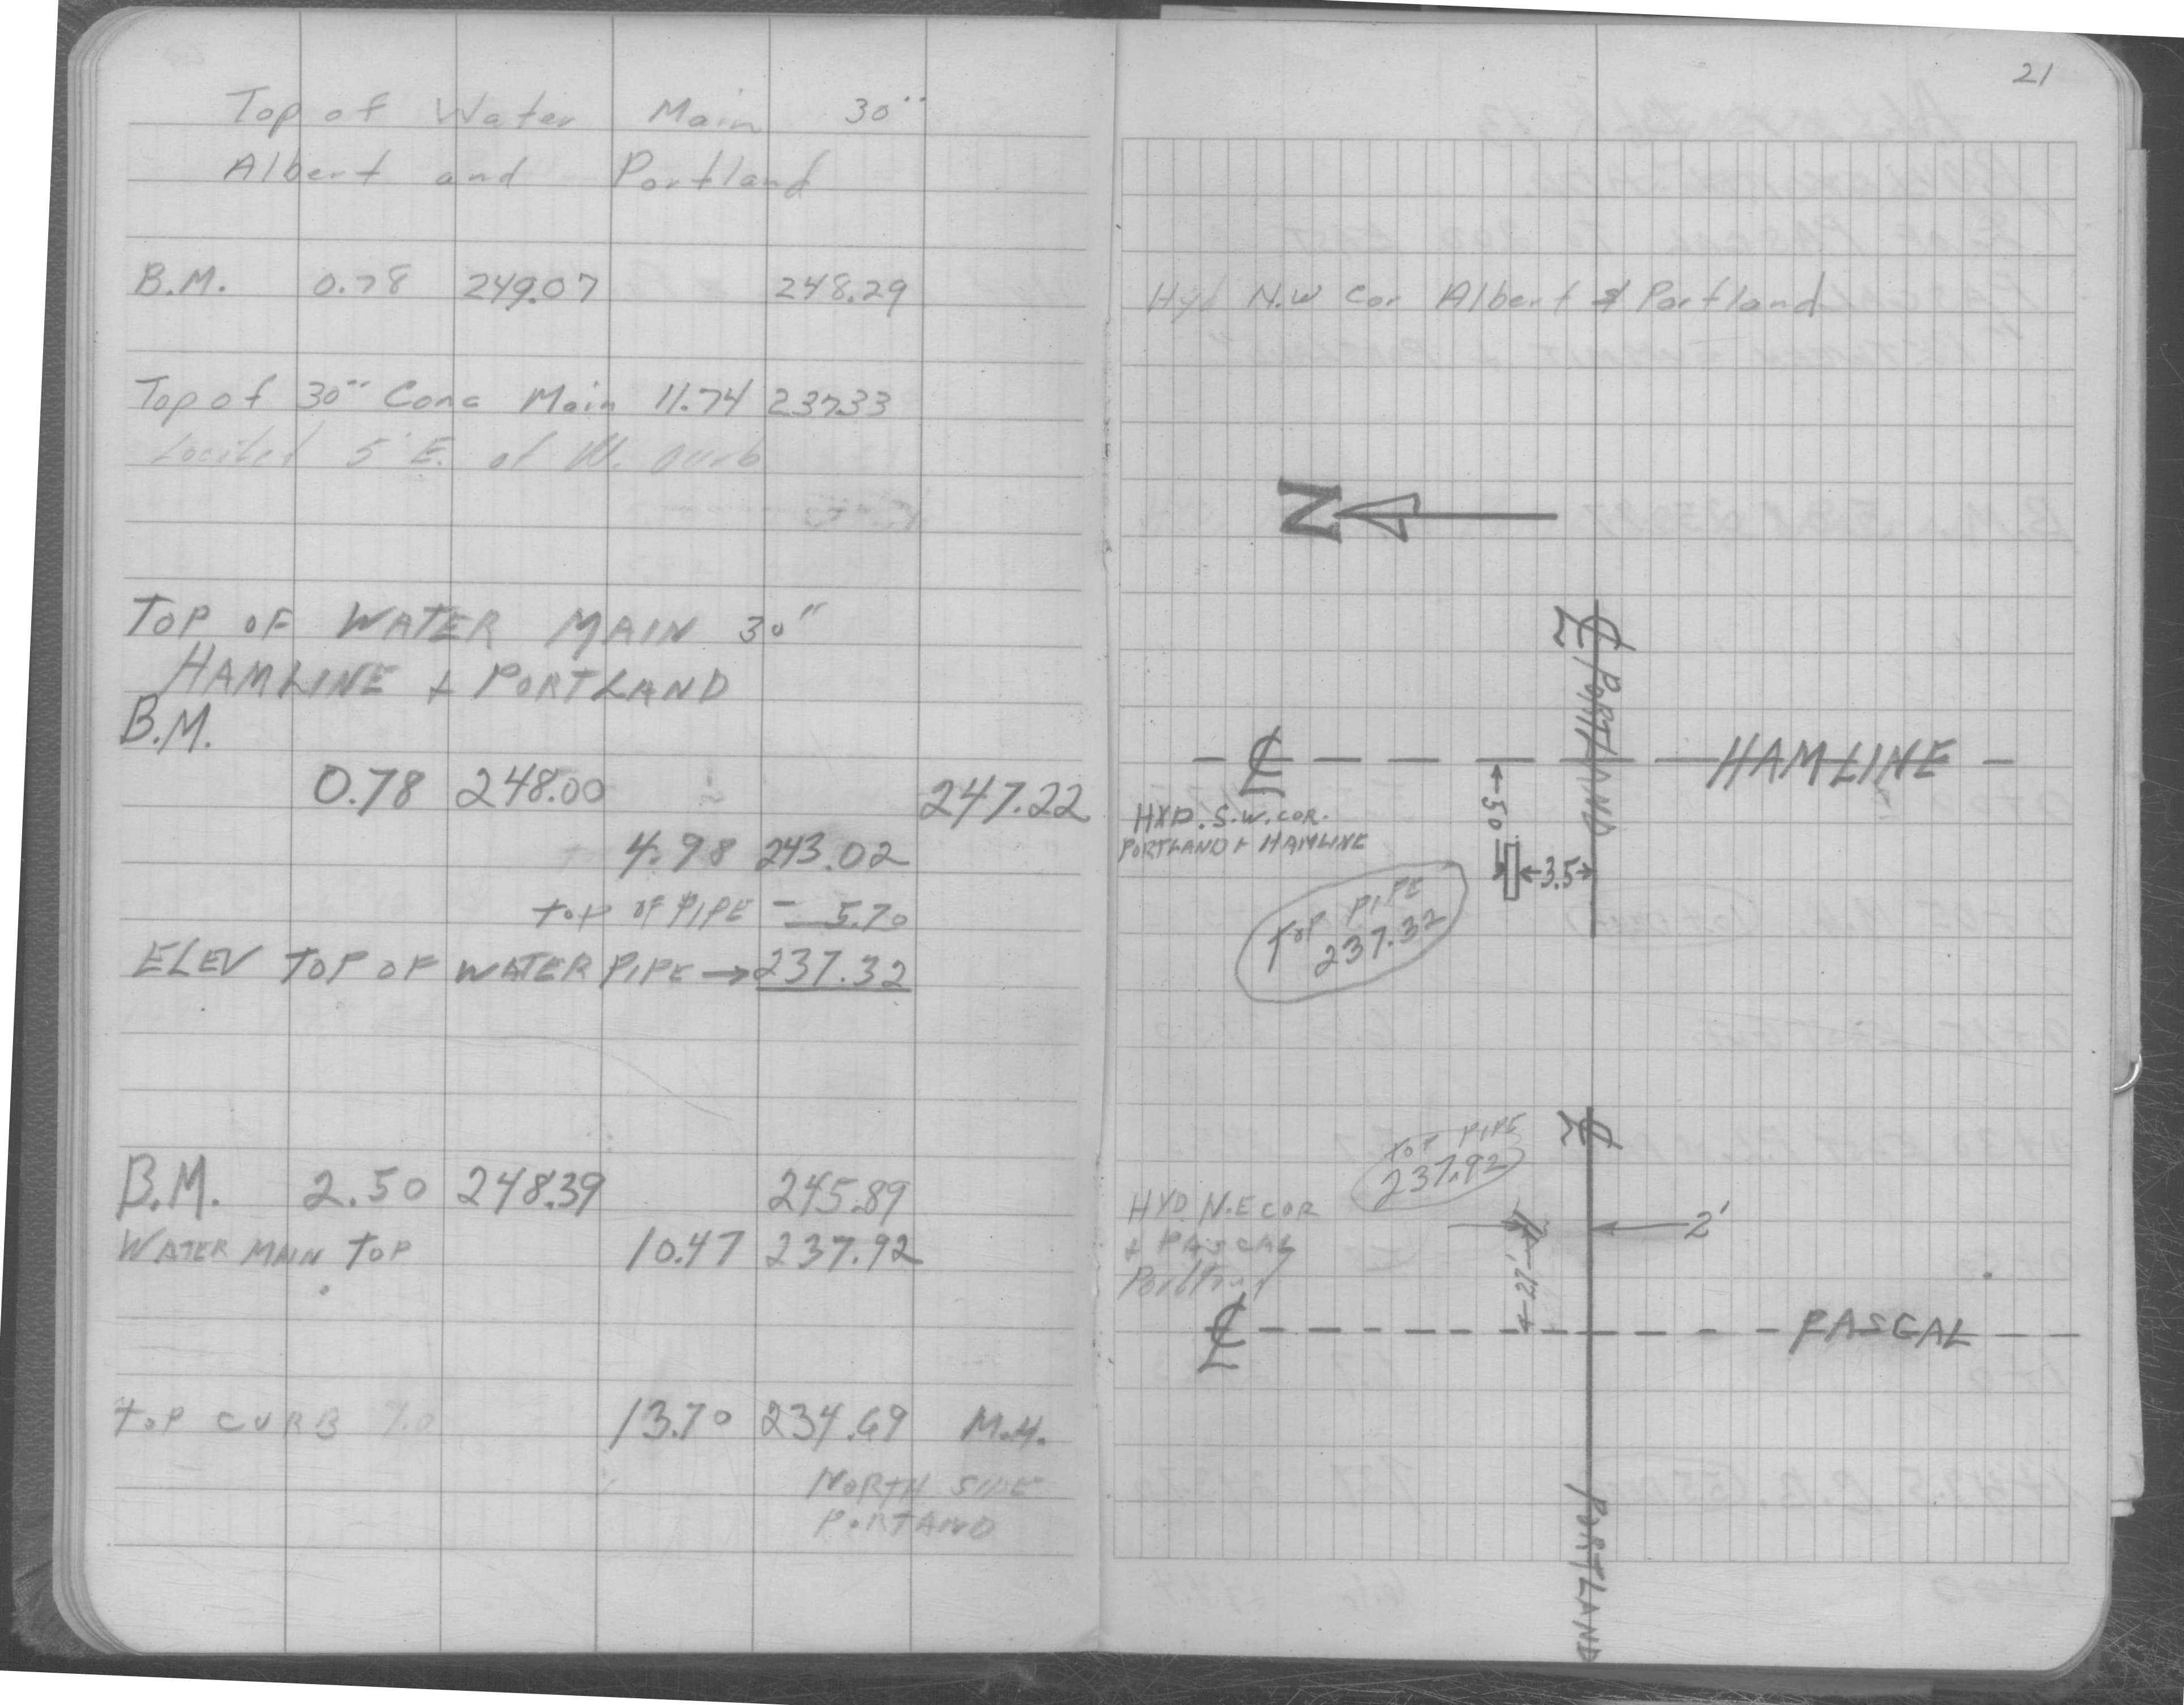 Top of Water Main 30"
Albert and Portland
B.M. 0.78 249.07 248.29
Top of 30" Conc Main 11.74 237.33
Located 5' E. of W. curb
TOP OF WATER MAIN 30"
HAMLINE + PORTLAND
B.M.
0.78 248.00 247.22
4.98 243.02
TOP OF PIPE - 5.70
ELEV TOP OF WATER PIPE → 237.32
B.M. 2.50 248.39 245.89
WATER MAIN TOP 10.47 237.92
TOP CURB 13.70 234.69 M.H.
NORTH SIDE
PORTAND
21
Hyd N.W Cor Albert & Portland
N
℄ PORTLAND
℄ HAMLINE
HYD. S.W. COR.
PORTLAND + HAMLINE
50
3.5
TOP PIPE
237.32
℄
TOP PIPE
237.92
HYD. N.E COR
+ PASCAL
Portland
2'
℄ PASCAL
PORTLAND